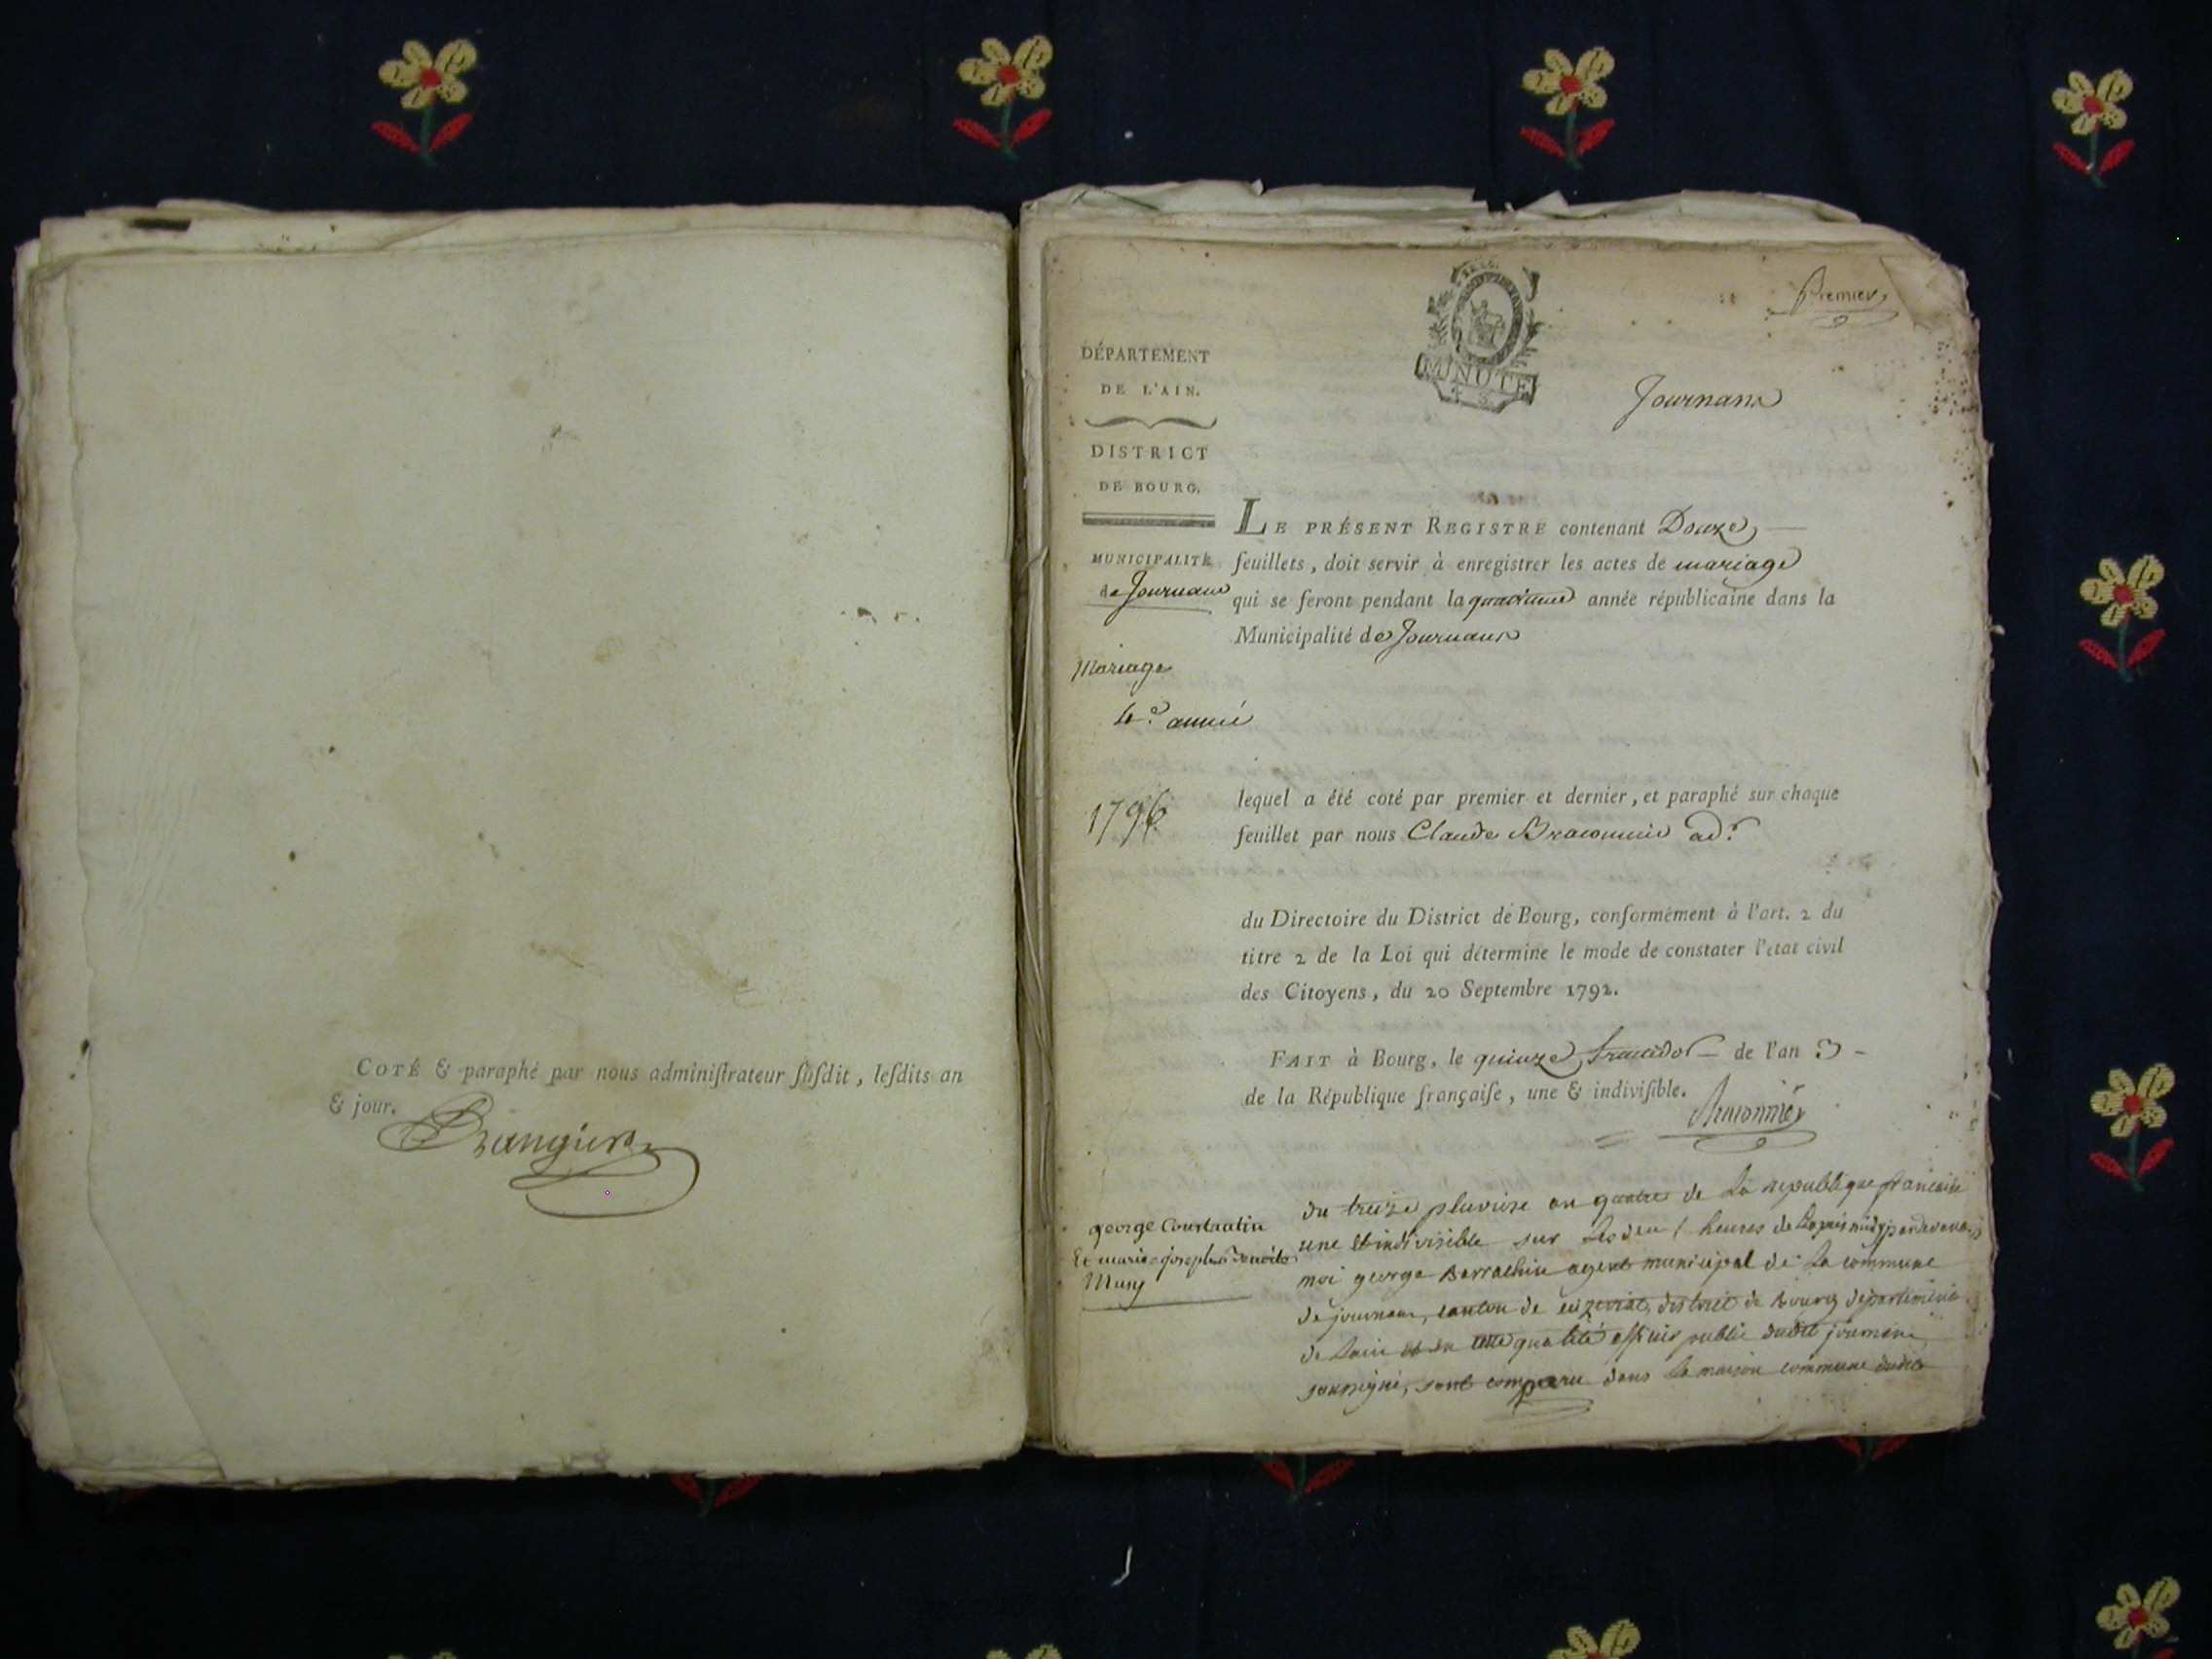 COTÉ & paraphé par nous adminiſtrateur ſuſdit, leſdits an
& jour.
Premier
MINUTE
DÉPARTEMENT
DE L'AIN.
Journans
DISTRICT
DE BOURG.
LE PRÉSENT REGISTRE contenant Douze
MUNICIPALITÉ
de Journans
feuillets, doit servir à enregistrer les actes de mariage
qui se feront pendant la quatrieme année républicaine dans la
Municipalité de Journans
Mariage
4e année
1796
lequel a été coté par premier et dernier, et paraphé sur chaque
feuillet par nous Claude Braconnier adr
du Directoire du District de Bourg, conformément à l'art. 2 du
titre 2 de la Loi qui détermine le mode de constater l'état civil
des Citoyens, du 20 Septembre 1792.
FAIT à Bourg, le quinze fructidor de l'an 3
de la République françaiſe, une & indiviſible.
Braconnier
george Constantin
Et marie josephe
Muny
du treize pluviose an quatre de la republique francaise
une et indivisible sur les deux heures de pardevant
moi george Barrachin agent municipal de la commune
de journans, canton de district de bourg departement
de lain et en cette qualité officier public dudit journans
soussigné, sont comparu dans la maison commune dudit